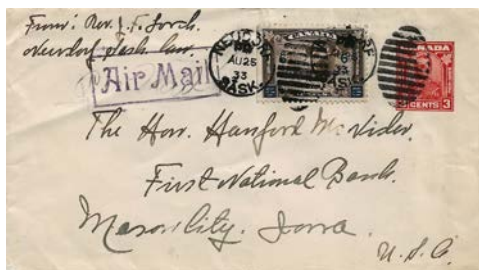 From: Rev. J. F. Lorch.
Neudorf Sask. Can.
Air Mail
NEUDORF
AU 25
33
SASK.
CANADA
CANADA
3 CENTS 3
The Hon. Hanford McNider.
First National Bank.
Mason City. Iowa.
U.S.A.